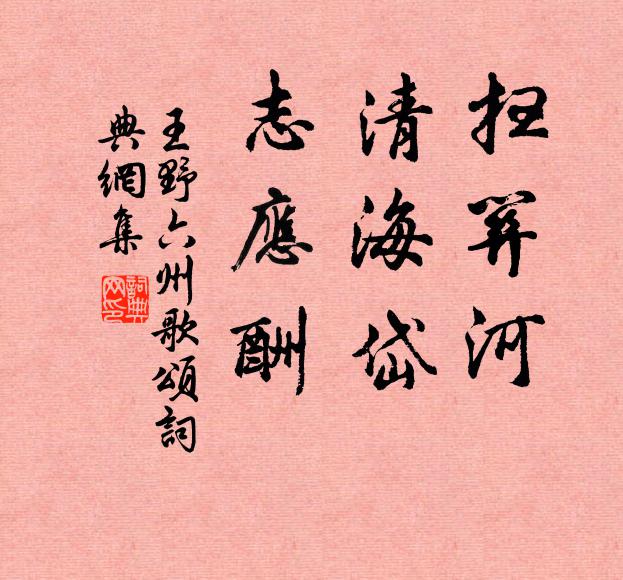 扫关河
清海岱
志應酬
王野六州歌頌詞
典網集
詞典
网印